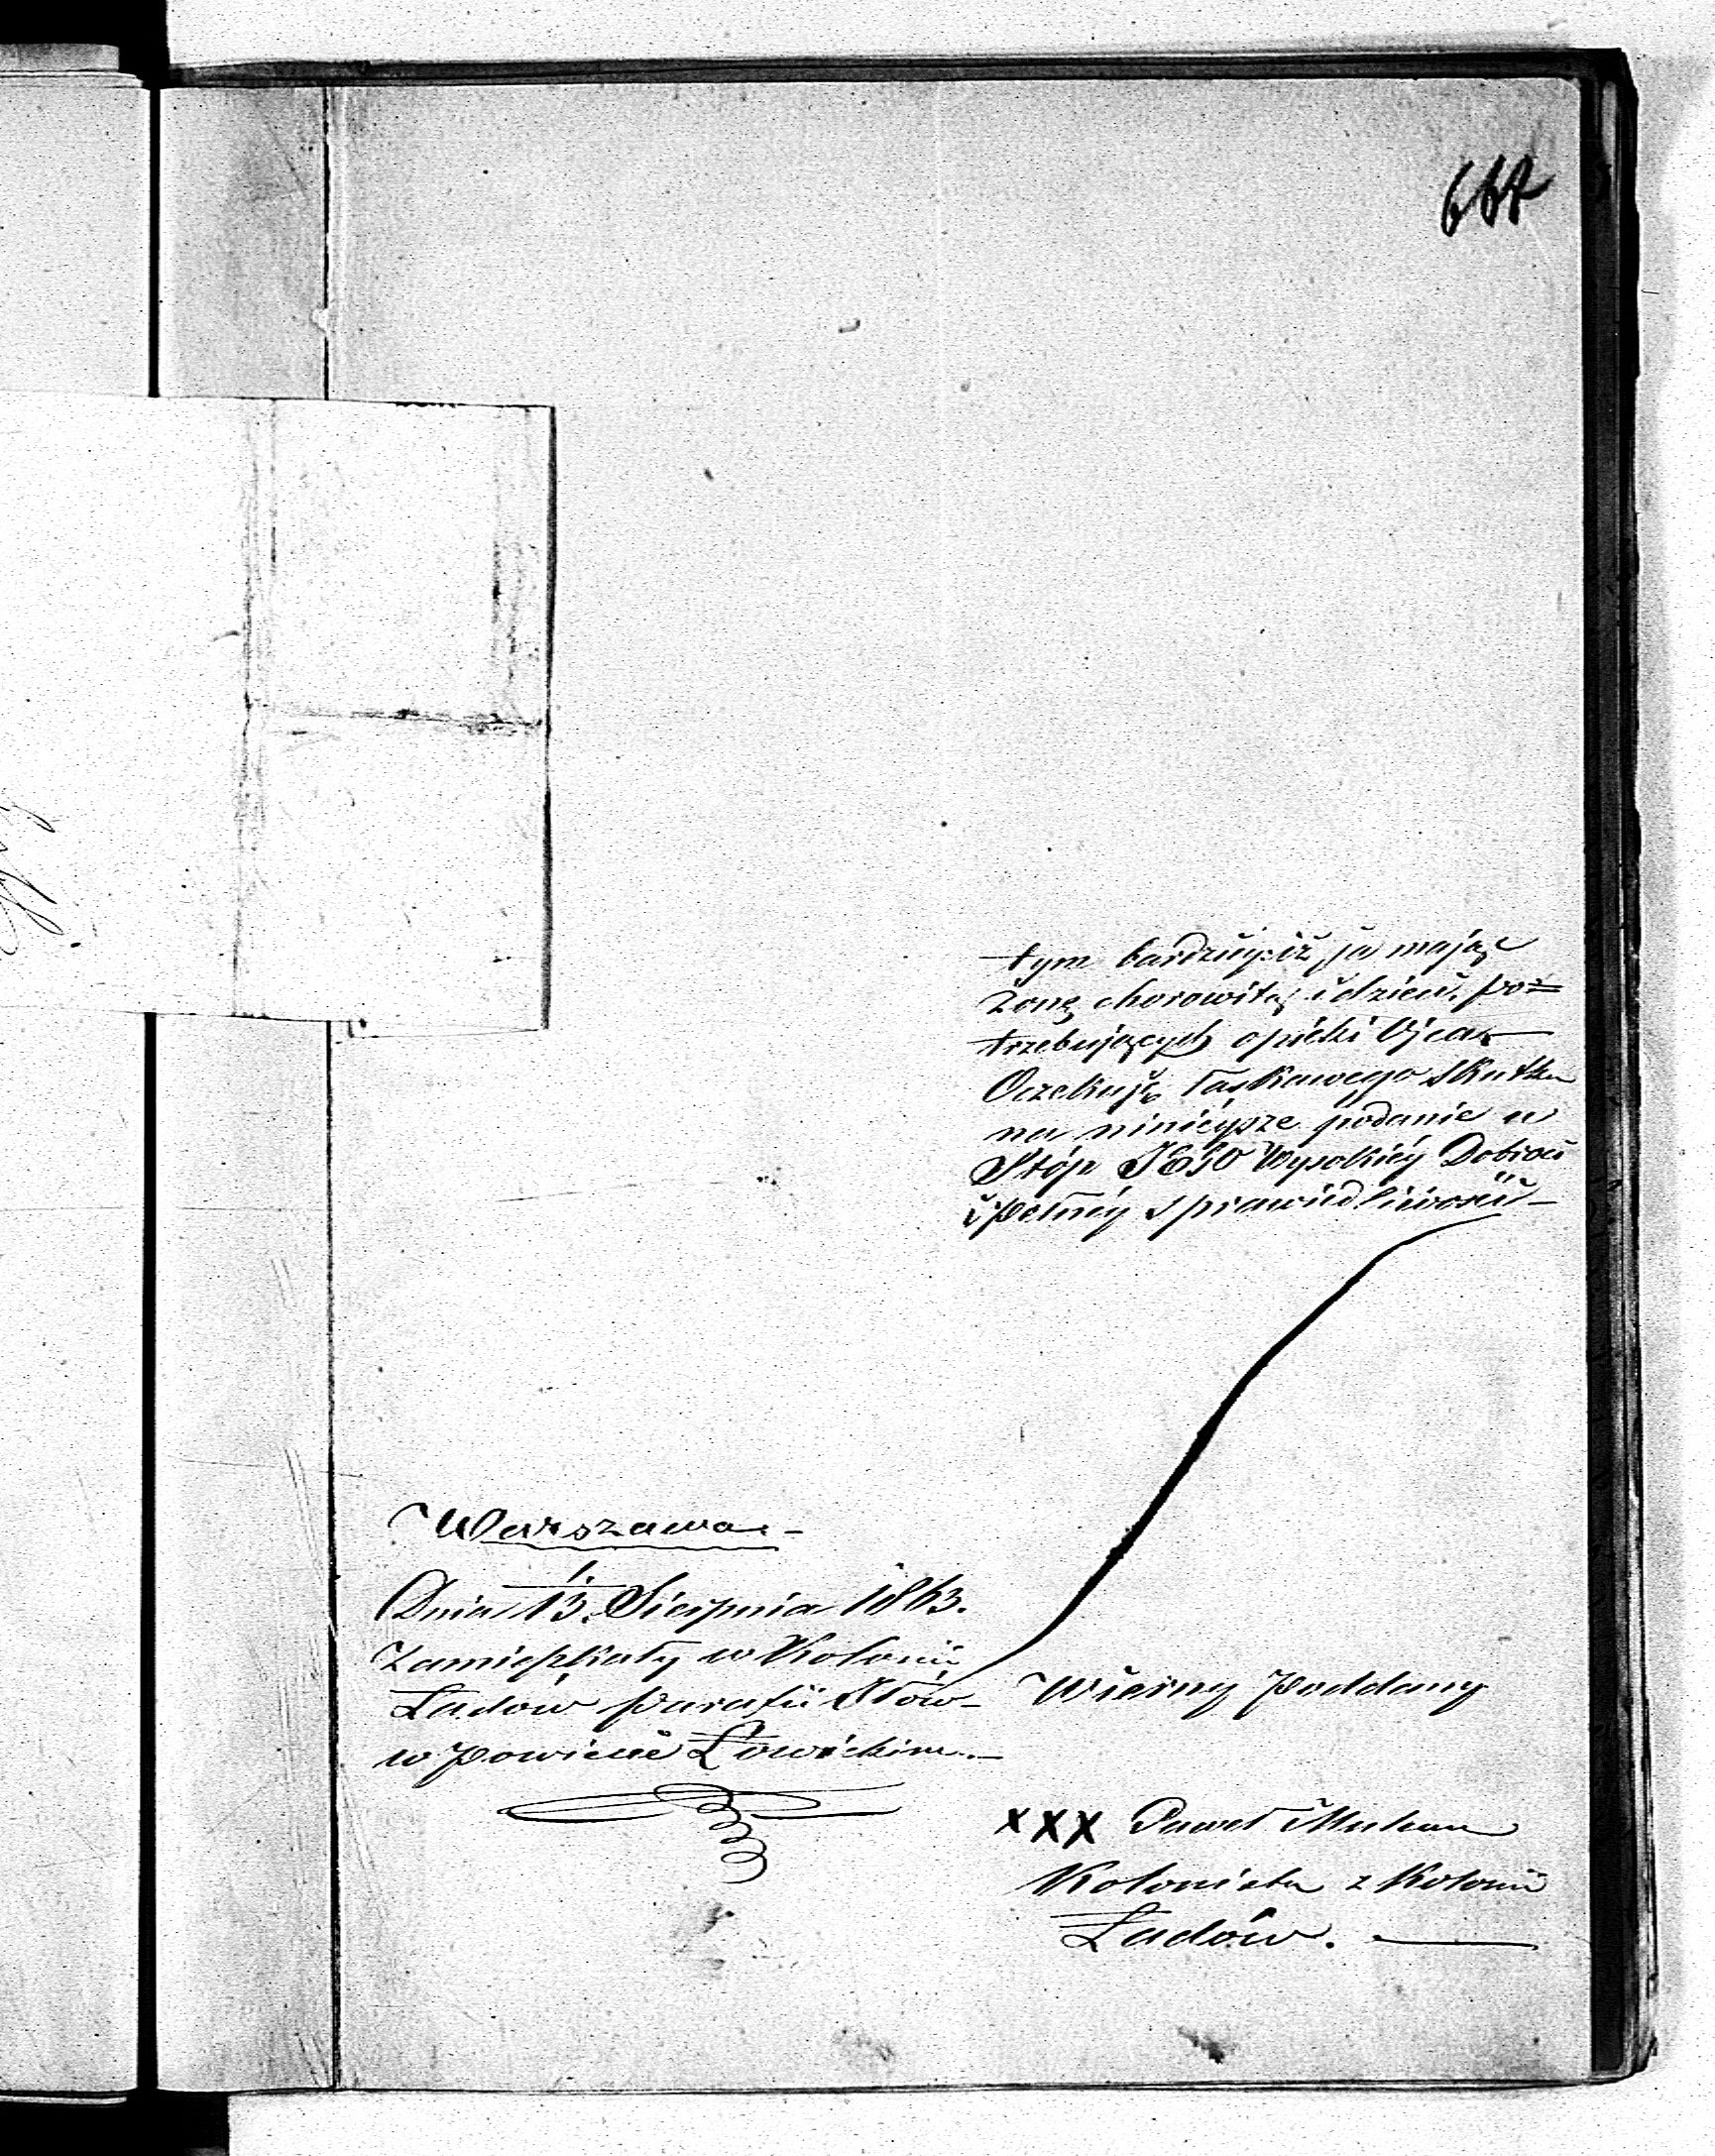 667
tym bardziéj iż ja mając
Żonę chorowitą i dzieci. po=
trzebujących opieki Ojca
Oczekuję łaskawego skutku
na niniéjsze podanie u
Stóp JEGO Wysokiéy Dobroci
i pełnéy sprawiedliwości
Warszawa
Dnia 13. Sierpnia 1863.
Zamieszkały w Kolonii
Ładów Parafii Iłów
w Powiecie Łowickim
Wierny Poddany
XXX Paweł
Kolonista z Kolonii
Ładów.